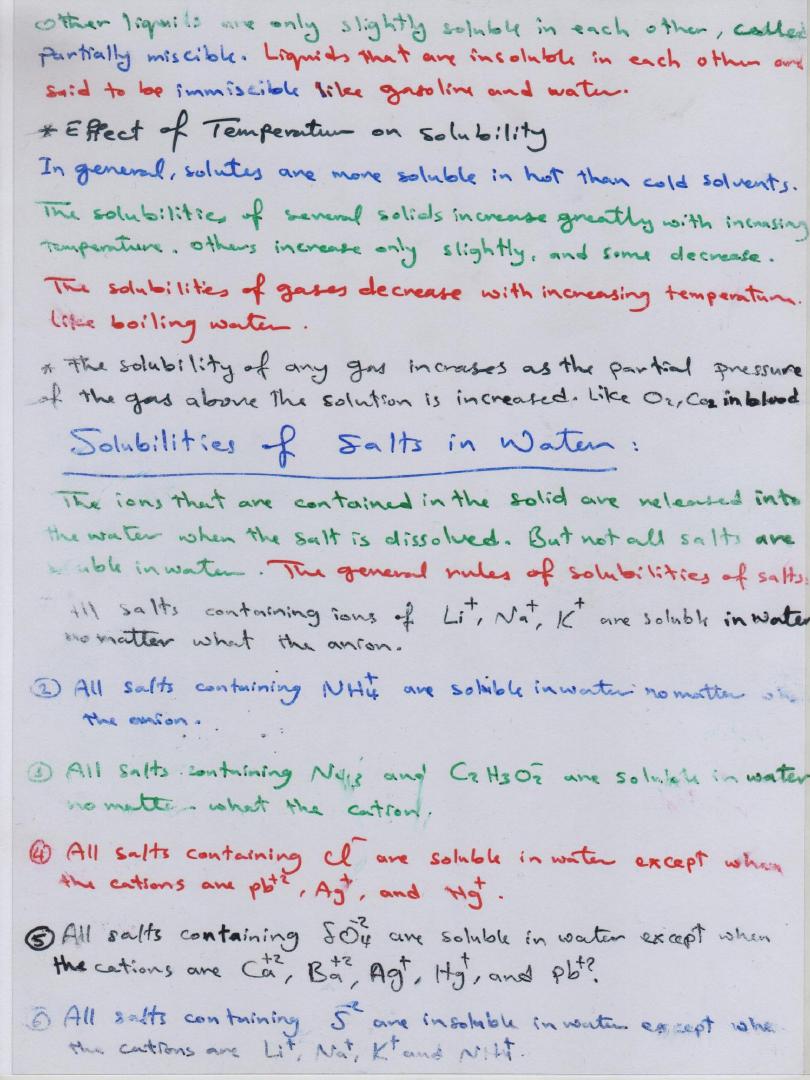 other liquids are only slightly soluble in each other, called
partially miscible. Liquids that are insoluble in each other are
said to be immiscible like gasoline and water.
* Effect of Temperature on solubility
In general, solutes are more soluble in hot than cold solvents.
The solubilities of several solids increase greatly with increasing
temperature. others increase only slightly, and some decrease.
The solubilities of gases decrease with increasing temperature.
like boiling water.
* The solubility of any gas increases as the partial pressure
of the gas above the solution is increased. Like O₂, CO₂ in blood
Solubilities of Salts in Water:
The ions that are contained in the solid are released into
the water when the salt is dissolved. But not all salts are
soluble in water. The general rules of solubilities of salts:
All salts containing ions of Li⁺, Na⁺, K⁺ are soluble in water
no matter what the anion.
② All salts containing NH₄⁺ are soluble in water no matter
the anion.
③ All salts containing and C₂H₃O₂⁻ are soluble in water
no matter what the cation.
④ All salts containing Cl⁻ are soluble in water except when
the cations are pb⁺², Ag⁺, and Hg⁺.
⑤ All salts containing SO₄⁻² are soluble in water except when
the cations are Ca⁺², Ba⁺², Ag⁺, Hg⁺, and pb⁺².
⑥ All salts containing S⁻² are insoluble in water except when
the cations are Li⁺, Na⁺, K⁺ and NH₄⁺.